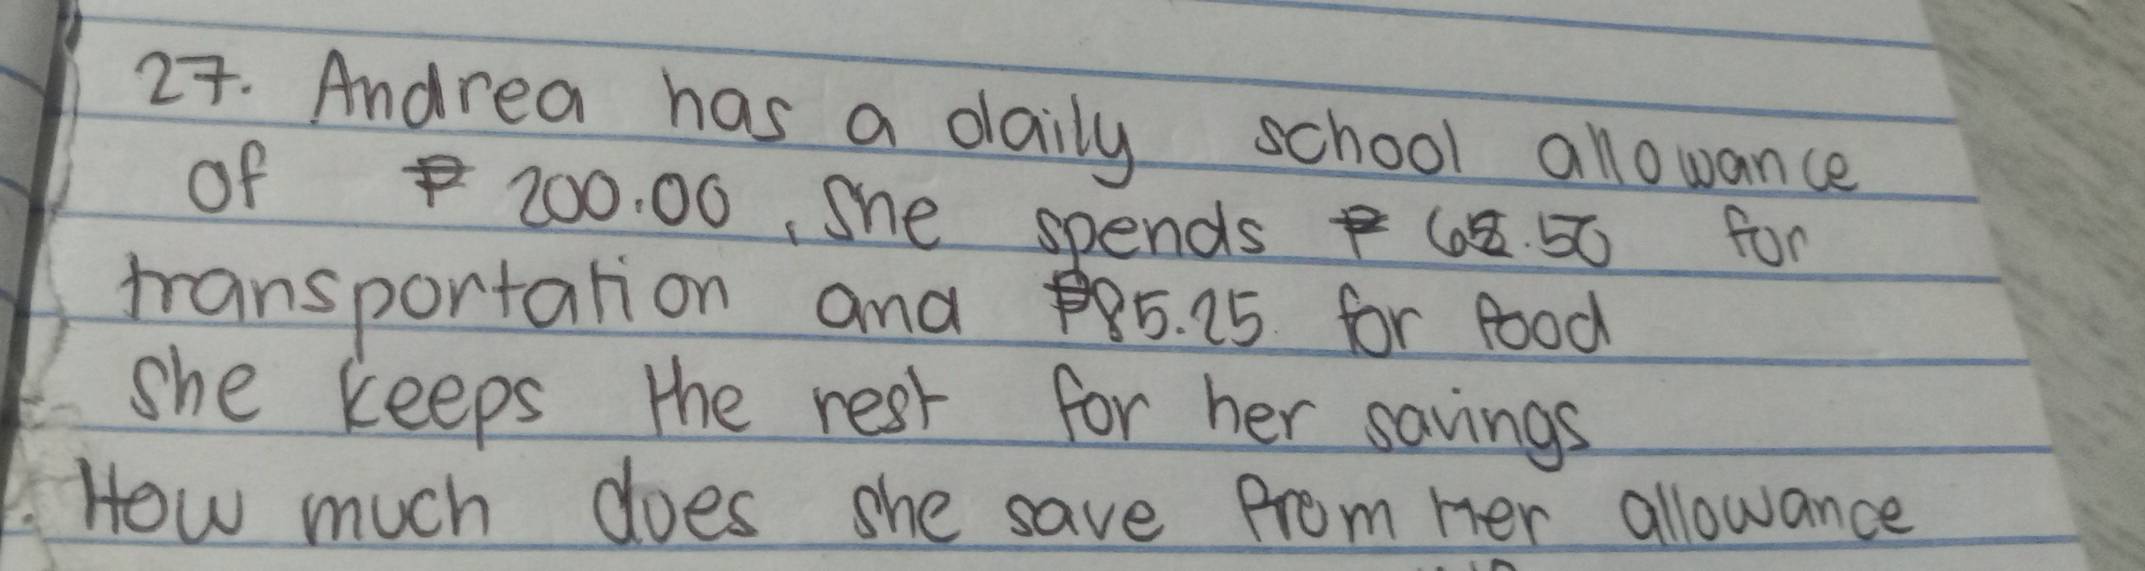 27. Andrea has a daily school allowance
of ₱ 200.00, She spends ₱ for
transportation and ₱85.25 for food
she keeps the rest for her savings
How much does she save from Her allowance